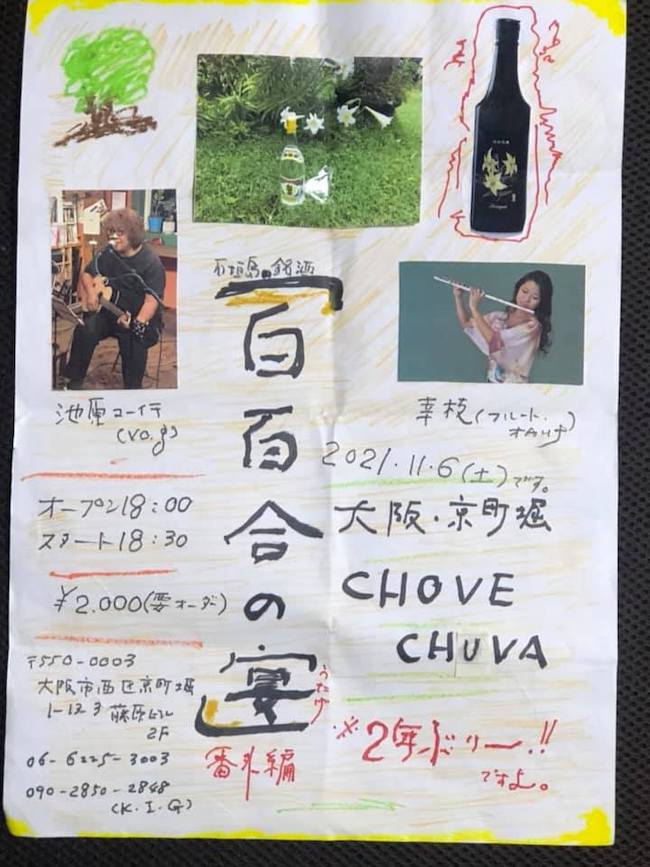 石垣島の銘酒
「百百合の宴」
うたげ
番外編
池原コーイチ
(Vo.g)
幸枝(フルート.
オカリナ)
2021.11.6(土)です。
大阪・京町堀
CHOVE
CHUVA
※2年ぶりー!!
ですよ。
オープン18:00
スタート18:30
¥2.000(要オーダー)
〒550-0003
大阪市西区京町堀
藤原ビル
2F
06-6225-3003
090-2850-2848
(K.I.G)